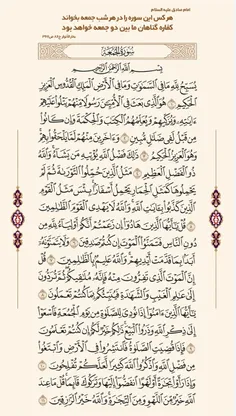 امام صادق علیه السلام
هر کس این سوره را در هر شب جمعه بخواند
کفاره گناهان ما بین دو جمعه خواهد بود
سُورَةُ الجُمُعَة
بِسْمِ اللَّهِ الرَّحْمَٰنِ الرَّحِيمِ
يُسَبِّحُ لِلَّهِ مَا فِي السَّمَاوَاتِ وَمَا فِي الْأَرْضِ الْمَلِكِ الْقُدُّوسِ الْعَزِيزِ
الْحَكِيمِ ۝١ هُوَ الَّذِي بَعَثَ فِي الْأُمِّيِّينَ رَسُولًا مِنْهُمْ يَتْلُو عَلَيْهِمْ
آيَاتِهِ وَيُزَكِّيهِمْ وَيُعَلِّمُهُمُ الْكِتَابَ وَالْحِكْمَةَ وَإِنْ كَانُوا
مِنْ قَبْلُ لَفِي ضَلَالٍ مُبِينٍ ۝٢ وَآخَرِينَ مِنْهُمْ لَمَّا يَلْحَقُوا بِهِمْ
وَهُوَ الْعَزِيزُ الْحَكِيمُ ۝٣ ذَٰلِكَ فَضْلُ اللَّهِ يُؤْتِيهِ مَنْ يَشَاءُ وَاللَّهُ
ذُو الْفَضْلِ الْعَظِيمِ ۝٤ مَثَلُ الَّذِينَ حُمِّلُوا التَّوْرَاةَ ثُمَّ لَمْ
يَحْمِلُوهَا كَمَثَلِ الْحِمَارِ يَحْمِلُ أَسْفَارًا بِئْسَ مَثَلُ الْقَوْمِ
الَّذِينَ كَذَّبُوا بِآيَاتِ اللَّهِ وَاللَّهُ لَا يَهْدِي الْقَوْمَ الظَّالِمِينَ ۝٥
قُلْ يَا أَيُّهَا الَّذِينَ هَادُوا إِنْ زَعَمْتُمْ أَنَّكُمْ أَوْلِيَاءُ لِلَّهِ مِنْ
دُونِ النَّاسِ فَتَمَنَّوُا الْمَوْتَ إِنْ كُنْتُمْ صَادِقِينَ ۝٦ وَلَا يَتَمَنَّوْنَهُ
أَبَدًا بِمَا قَدَّمَتْ أَيْدِيهِمْ وَاللَّهُ عَلِيمٌ بِالظَّالِمِينَ ۝٧ قُلْ
إِنَّ الْمَوْتَ الَّذِي تَفِرُّونَ مِنْهُ فَإِنَّهُ مُلَاقِيكُمْ ثُمَّ تُرَدُّونَ
إِلَىٰ عَالِمِ الْغَيْبِ وَالشَّهَادَةِ فَيُنَبِّئُكُمْ بِمَا كُنْتُمْ تَعْمَلُونَ ۝٨
يَا أَيُّهَا الَّذِينَ آمَنُوا إِذَا نُودِيَ لِلصَّلَاةِ مِنْ يَوْمِ الْجُمُعَةِ فَاسْعَوْا
إِلَىٰ ذِكْرِ اللَّهِ وَذَرُوا الْبَيْعَ ذَٰلِكُمْ خَيْرٌ لَكُمْ إِنْ كُنْتُمْ تَعْلَمُونَ ۝٩
فَإِذَا قُضِيَتِ الصَّلَاةُ فَانْتَشِرُوا فِي الْأَرْضِ وَابْتَغُوا
مِنْ فَضْلِ اللَّهِ وَاذْكُرُوا اللَّهَ كَثِيرًا لَعَلَّكُمْ تُفْلِحُونَ ۝١٠
وَإِذَا رَأَوْا تِجَارَةً أَوْ لَهْوًا انْفَضُّوا إِلَيْهَا وَتَرَكُوكَ قَائِمًا قُلْ مَا عِنْدَ
اللَّهِ خَيْرٌ مِنَ اللَّهْوِ وَمِنَ التِّجَارَةِ وَاللَّهُ خَيْرُ الرَّازِقِينَ ۝١١